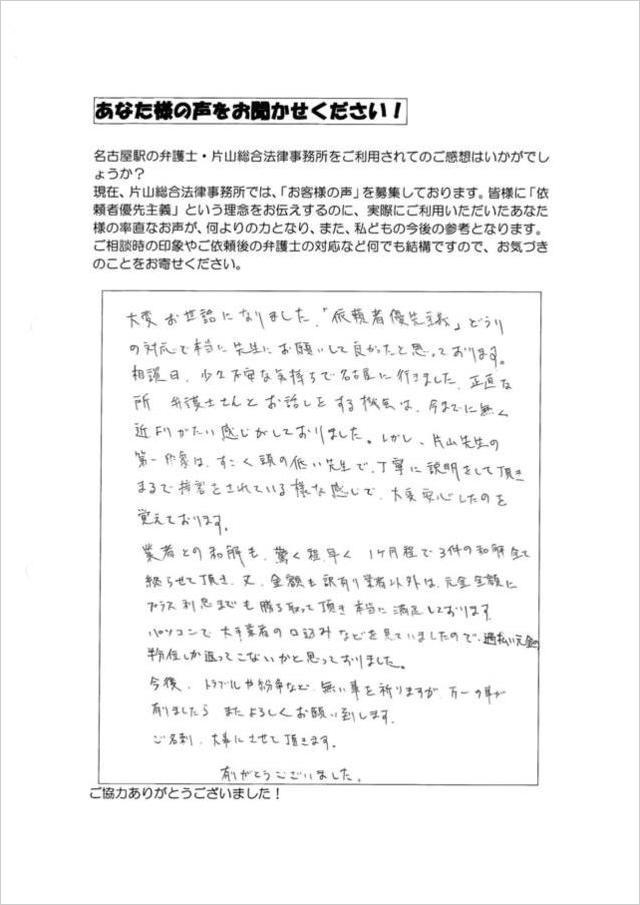 あなた様の声をお聞かせください！
名古屋駅の弁護士・片山総合法律事務所をご利用されてのご感想はいかがでしょうか？
現在、片山総合法律事務所では、「お客様の声」を募集しております。皆様に「依
頼者優先主義」という理念をお伝えするのに、実際にご利用いただいたあなた
様の率直なお声が、何よりの力となり、また、私どもの今後の参考となります。
ご相談時の印象やご依頼後の弁護士の対応など何でも結構ですので、お気づき
のことをお寄せください。
大変お世話になりました。「依頼者優先主義」どうり
の対応で本当に先生にお願いして良かったと思っております。
相談日、少々不安な気持ちで名古屋に行きました。正直な
所 弁護士さんとお話しをする機会は、今までに無く
近よりがたい感じがしておりました。しかし、片山先生の
第一印象は、すごく頭の低い先生で、丁寧に説明をして頂き
まるで接客をされている様な感じで、大変安心したのを
覚えております。
業者との和解も、驚く程早く 1ヶ月程で3件の和解全て
終らせて頂き、又、金額も訳有り業者以外は、元金全額に
プラス利息までも勝ち取って頂き本当に満足しております
パソコンで大手業者の口込みなどを見ていましたので、過払い元金の
半分位しか返ってこないかと思っておりました。
今後、トラブルや紛争など、無い事を祈りますが、万一の事が
有りましたら またよろしくお願い致します。
ご名刺、大事にさせて頂きます。
有りがとうございました。
ご協力ありがとうございました！